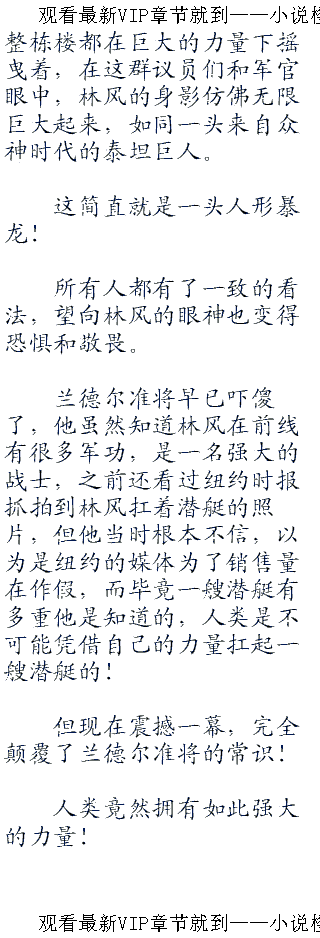 观看最新VIP章节就到——小说
整栋楼都在巨大的力量下摇
曳着，在这群议员们和军官
眼中，林风的身影仿佛无限
巨大起来，如同一头来自众
神时代的泰坦巨人。
这简直就是一头人形暴
龙！
所有人都有了一致的看
法，望向林风的眼神也变得
恐惧和敬畏。
兰德尔准将早已吓傻
了，他虽然知道林风在前线
有很多军功，是一名强大的
战士，之前还看过纽约时报
抓拍到林风扛着潜艇的照
片，但他当时根本不信，以
为是纽约的媒体为了销售量
在作假，而毕竟一艘潜艇有
多重他是知道的，人类是不
可能凭借自己的力量扛起一
艘潜艇的！
但现在震撼一幕，完全
颠覆了兰德尔准将的常识！
人类竟然拥有如此强大
的力量！
观看最新VIP章节就到——小说